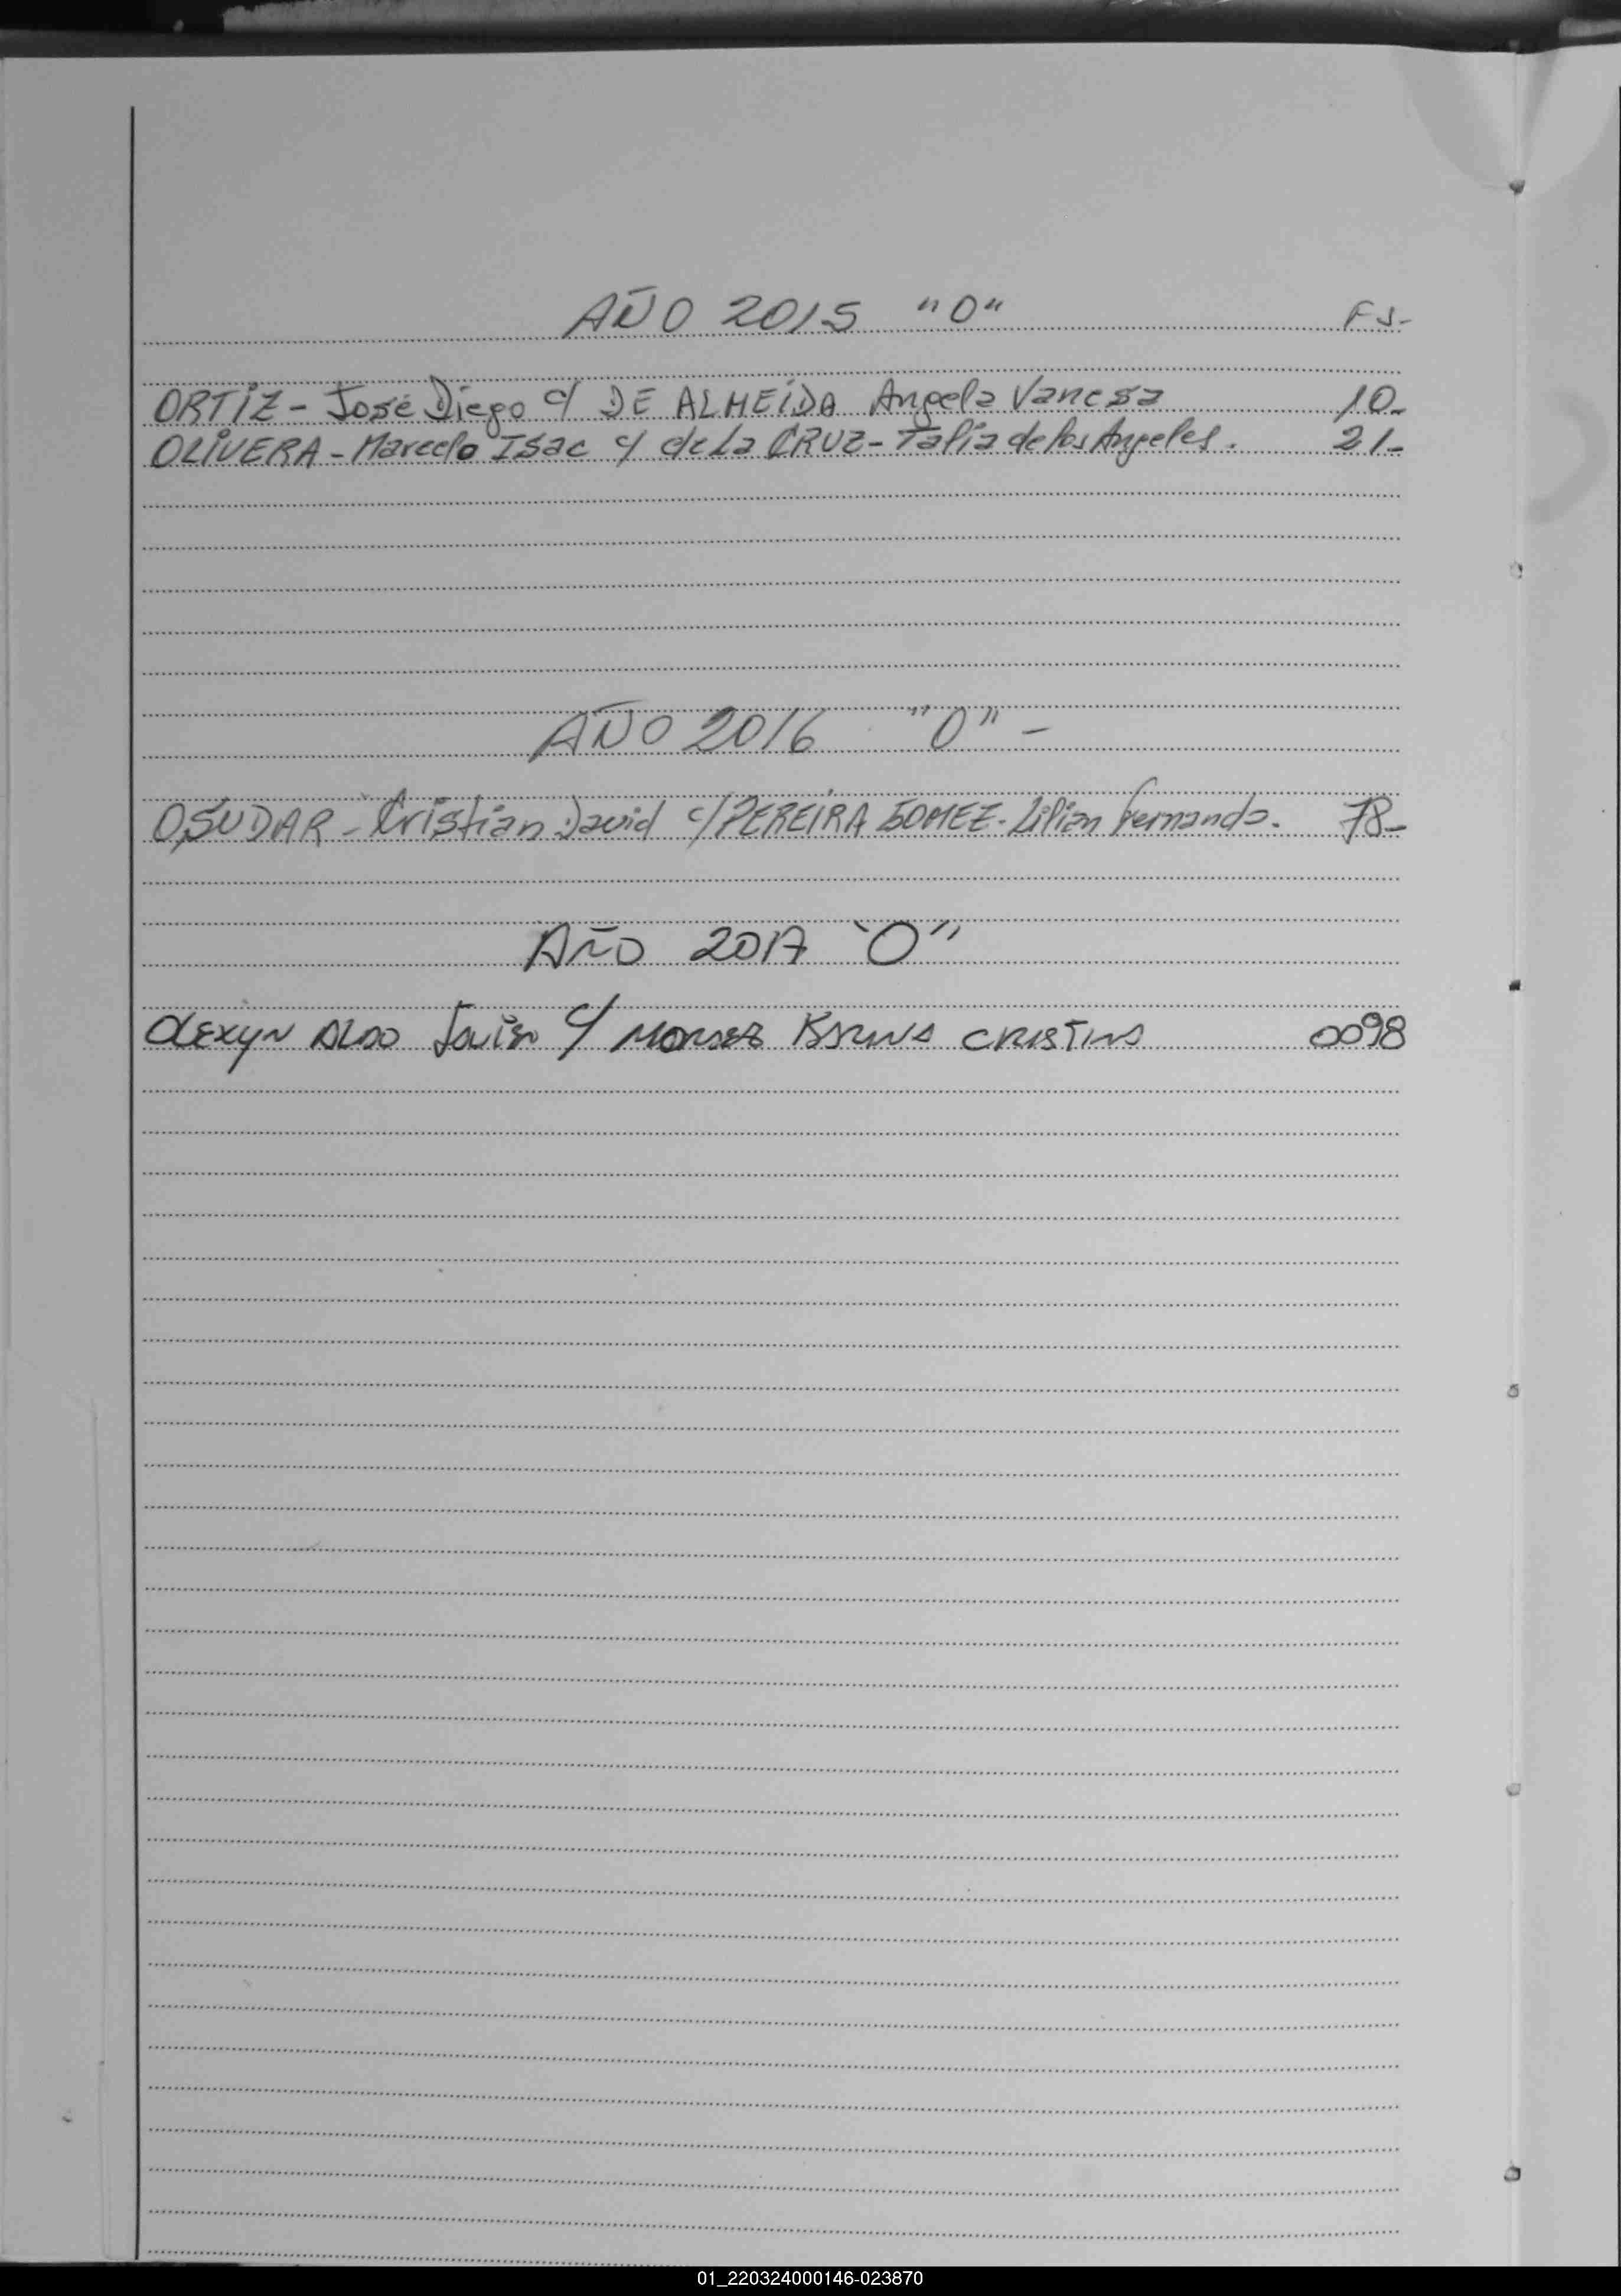 AÑO 2015 "O" FS-
ORTIZ - José Diego c/ DE ALMEIDA Angela Vanesa 10.
OLIVERA - Marcelo Isac c/ de La CRUZ - Talia de los Angeles. 21-
AÑO 2016 "O" -
OSUDAR - Cristian David c/ PEREIRA GOMEZ - Lilian Fernanda. 78-
AÑO 2017 "O"
OLEXYN ALDO Javier c/ CRISTINA 0098
01_220324000146-023870